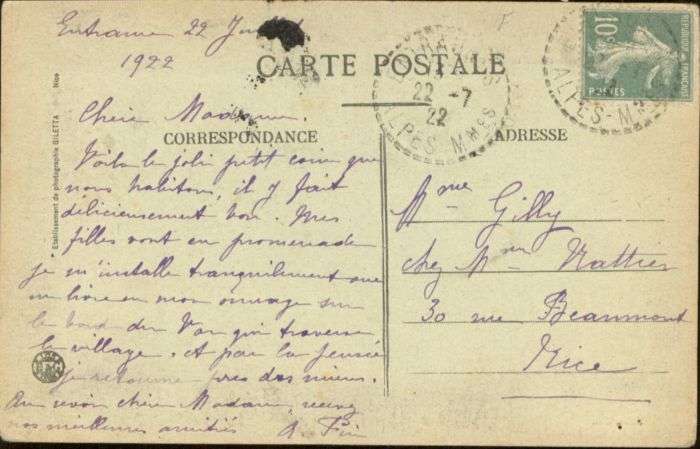 Entraunes 22 Juillet
1922
CARTE POSTALE
CORRESPONDANCE
ADRESSE
Etablissement de photographie GILETTA
Nice
RÉPUBLIQUE FRANÇAISE
10c
POSTES
22 -7
22
ALPES-MMES
ALPES-M
Chère Madame.
Voilà le joli petit coin que
nous habitons, il y fait
délicieusement bon. Mes
filles vont en promenade
je m'installe tranquilement avec
un livre ou mon ouvrage sur
le bord du Var qui traverse
le village. et par la pensée
je retourne près des miens.
Au revoir chère Madame, recevez
nos meilleures amitiés
Mme Gilly
chez Mme
30 rue Beaumont
Nice